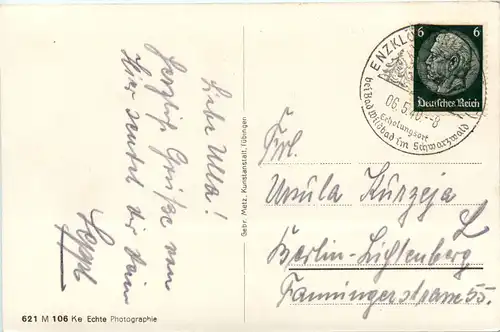 Liebe Ulla!
Herzliche Grüße von
Hier sendet dir dein
Seppl
Gebr. Metz, Kunstanstalt, Tübingen
621 M 106 Ke Echte Photographie
6 6
Deutsches Reich
ENZKLÖ
06.5.40.-8
Erholungsort
bei Bad Wildbad im Schwarzwald
Frl.
Ursula Kurzeja
Berlin-Lichtenberg
Fanningerstrasse 55.